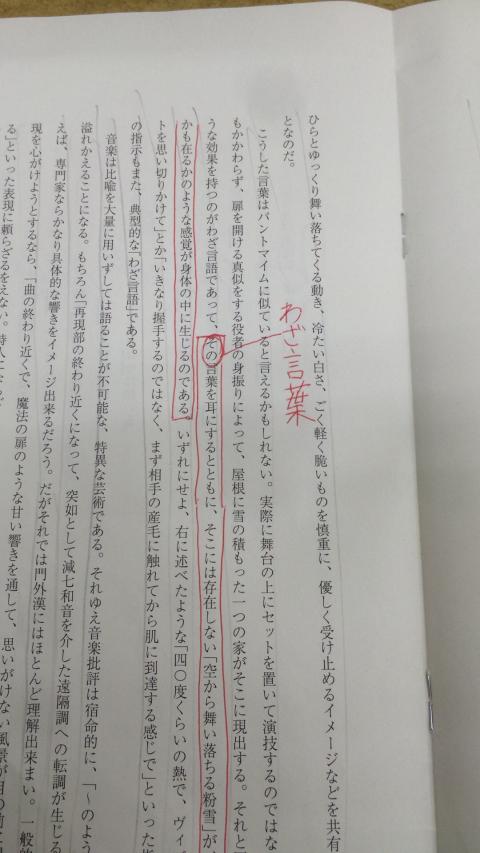 ひらとゆっくり舞い落ちてくる動き、冷たい白さ、ごく軽く脆いものを慎重に、優しく受け止めるイメージなどを共有
となのだ。
こうした言葉はパントマイムに似ていると言えるかもしれない。実際に舞台の上にセットを置いて演技するのではな
もかかわらず、扉を開ける真似をする役者の身振りによって、屋根に雪の積もった一つの家がそこに現出する。それと
わざ言葉
うな効果を持つのがわざ言語であって、その言葉を耳にするとともに、そこには存在しない「空から舞い落ちる粉雪」が、
かも在るかのような感覚が身体の中に生じるのである。いずれにせよ、右に述べたような「四〇度くらいの熱で、ヴィブ
トを思い切りかけて」とか「いきなり握手するのではなく、まず相手の産毛に触れてから肌に到達する感じで」といった
の指示もまた、典型的な「わざ言語」である。
音楽は比喩を大量に用いずしては語ることが不可能な、特異な芸術である。それゆえ音楽批評は宿命的に、「〜のよう
溢れかえることになる。もちろん「再現部の終わり近くになって、突如として減七和音を介した遠隔調への転調が生じる
えば、専門家ならかなり具体的な響きをイメージ出来るだろう。だがそれでは門外漢にはほとんど理解出来まい。一般的
現を心がけようとするなら、「曲の終わり近くで、魔法の扉のような甘い響きを通して、思いがけない風景が目の前に
る」といった表現に頼らざるをえない。